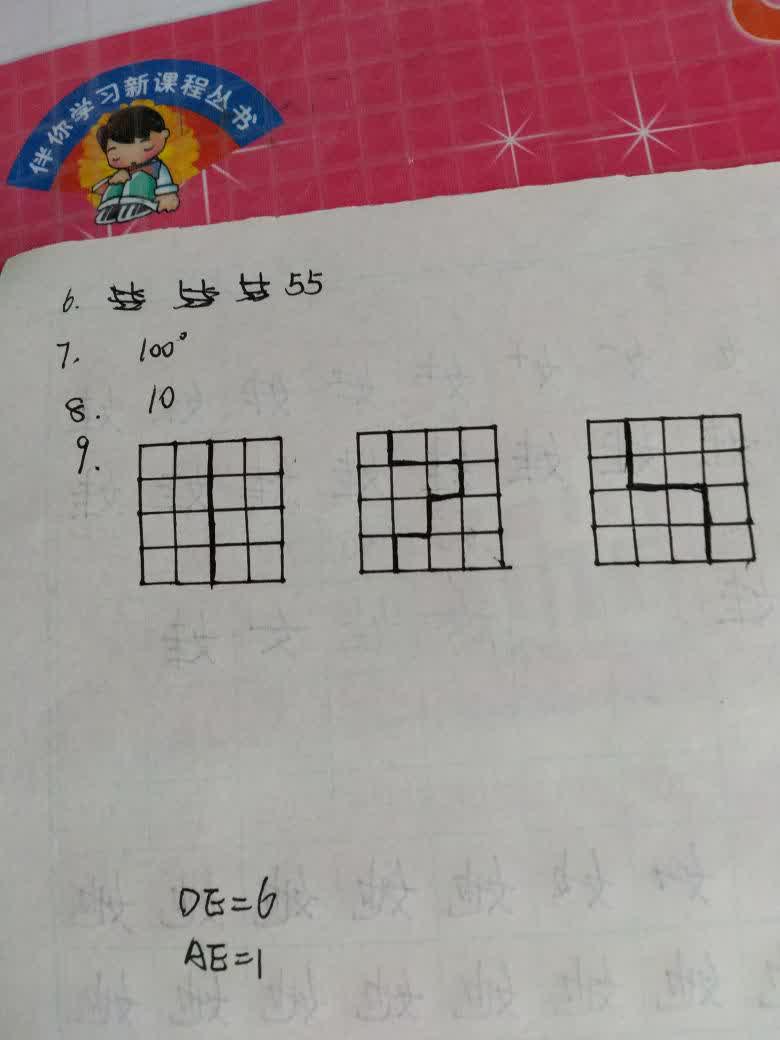 伴你学习新课程丛书
6. 55
7. 100°
8. 10
9.
DE=6
AE=1